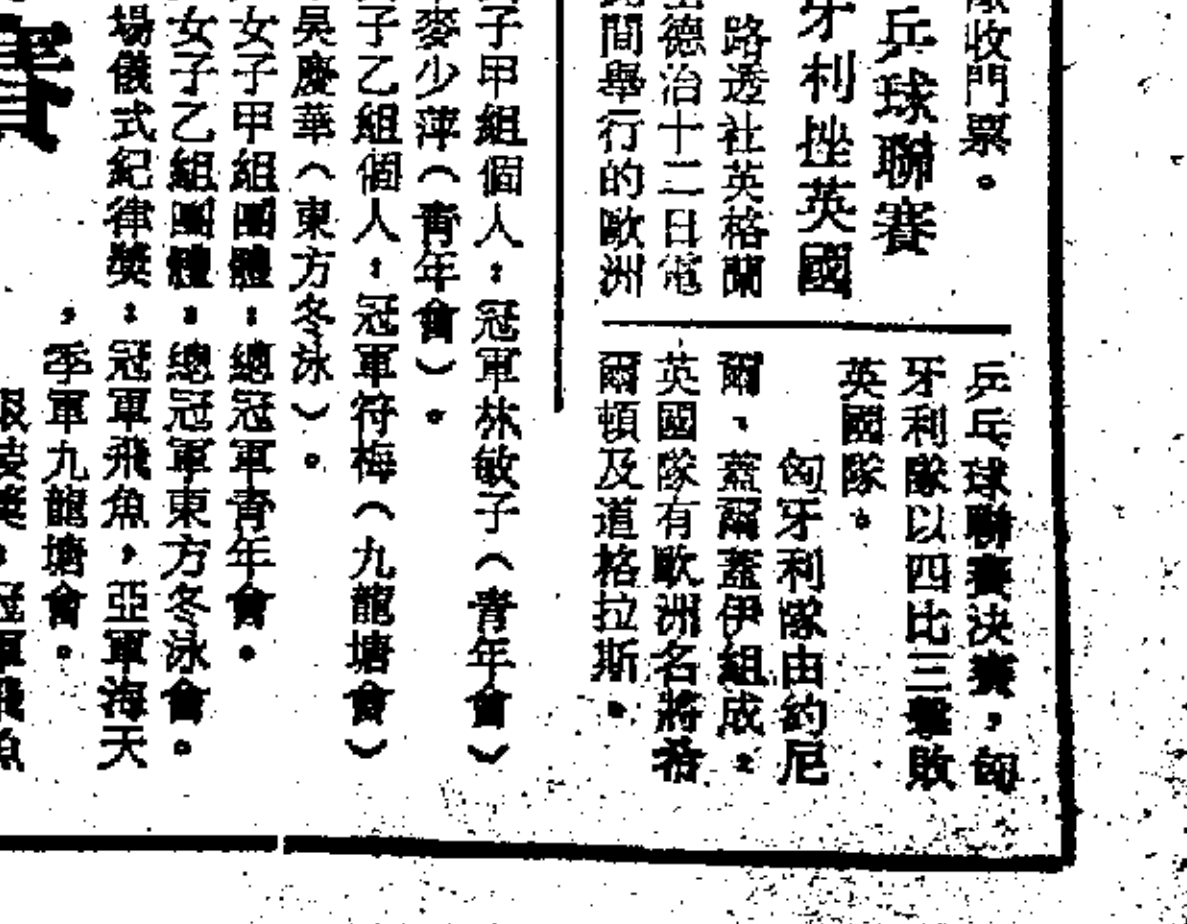 收門票。
乒球聯賽
牙利挫英國
路透社英格蘭
德治十二日電
間舉行的歐洲
乒乓球聯賽決賽，匈
牙利隊以四比三擊敗
英國隊。
匈牙利隊由約尼
爾、蓋爾蓋伊組成。
英國隊有歐洲名將希
爾頓及道格拉斯。
子甲組個人：冠軍林敏子（青年會）
麥少萍（青年會）。
子乙組個人：冠軍符梅（九龍塘會）
吳慶華（東方冬泳）。
女子甲組團體：總冠軍青年會。
女子乙組團體：總冠軍東方冬泳會。
場儀式紀律獎：冠軍飛魚，亞軍海天
，季軍九龍塘會。